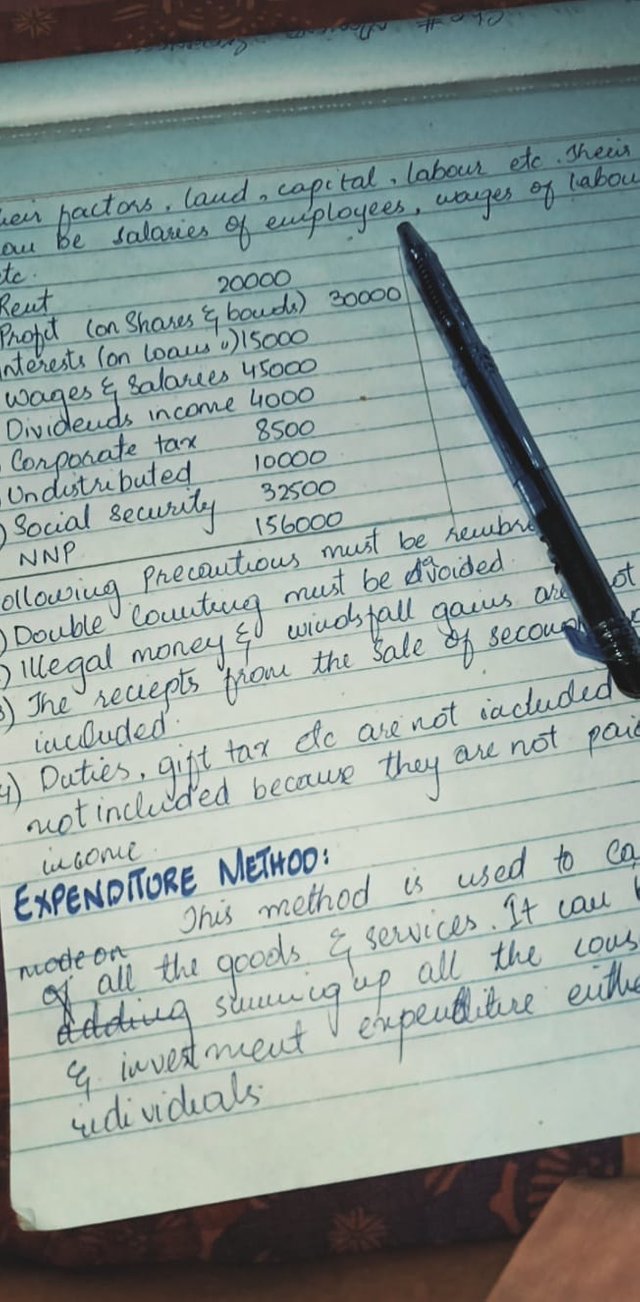 factors, land, capital, labour etc. Their
be salaries of employees, wages of labou
etc.
Rent 20000
Profit (on Shares & bonds) 30000
Interests (on loans ") 15000
Wages & Salaries 45000
Dividends income 4000
Corporate tax 8500
Undistributed 10000
) Social Security 32500
NNP 156000
ollowing Precautions must be
) Double Counting must be avoided.
) Illegal money & windsfall gains are ot
3) The reciepts from the sale of secoun
included.
4) Duties, gift tax etc are not included
not included because they are not paid
income.
EXPENDITURE METHOD:
This method is used to ca
made on
of all the goods & services. It can
adding summing up all the cons
& investment expenditure eithe
individuals.